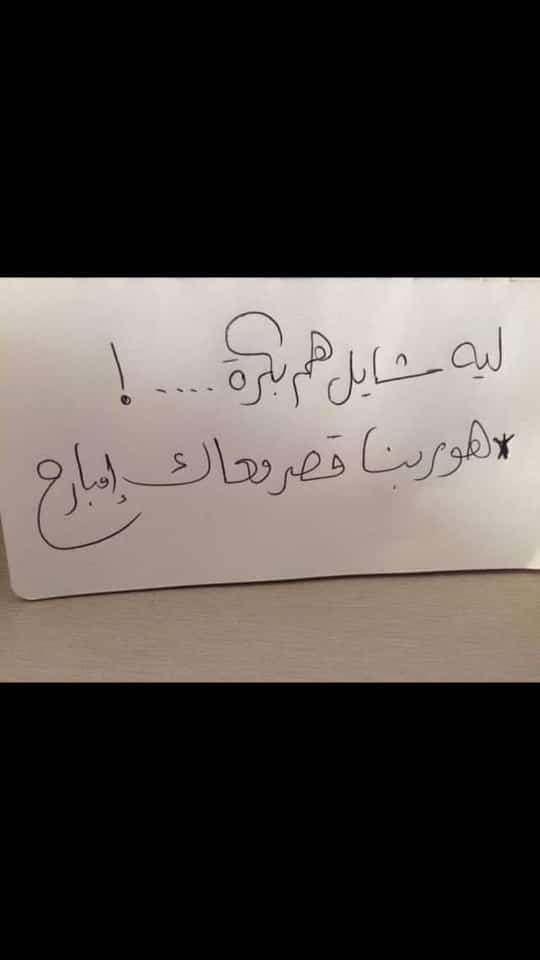 ليه شايل هم بكرة ....!
* هو ربنا قصر معاك إمبارح